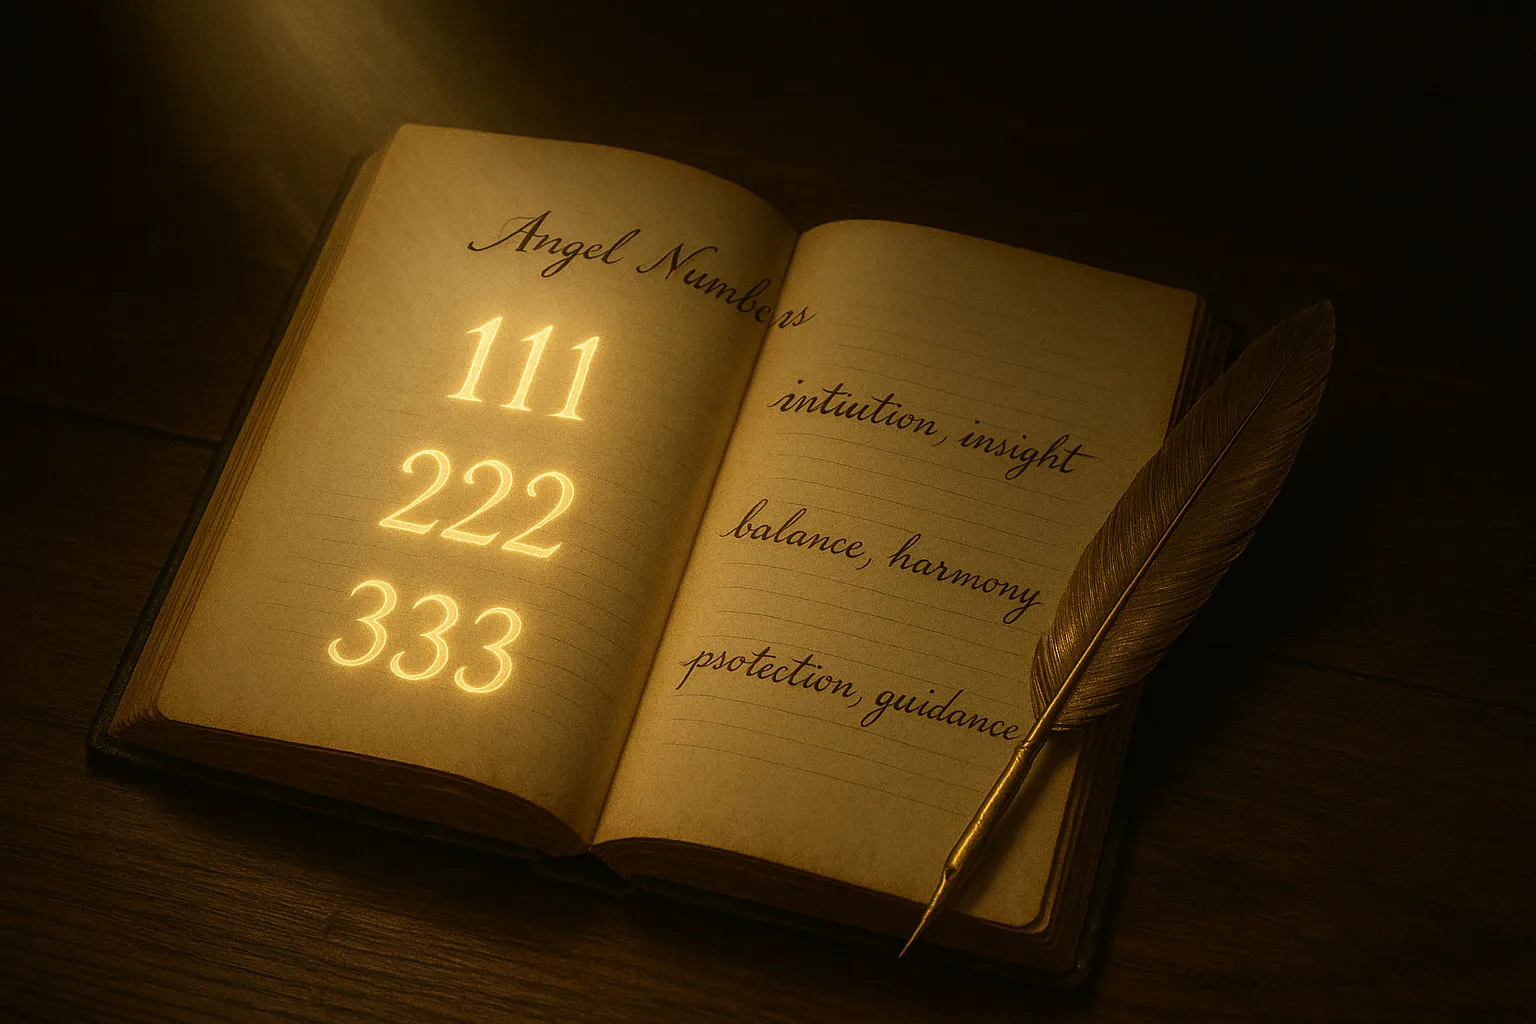 Angel Numbers
111
intiution, insight
222
balance, harmony
333
psotection, guidance